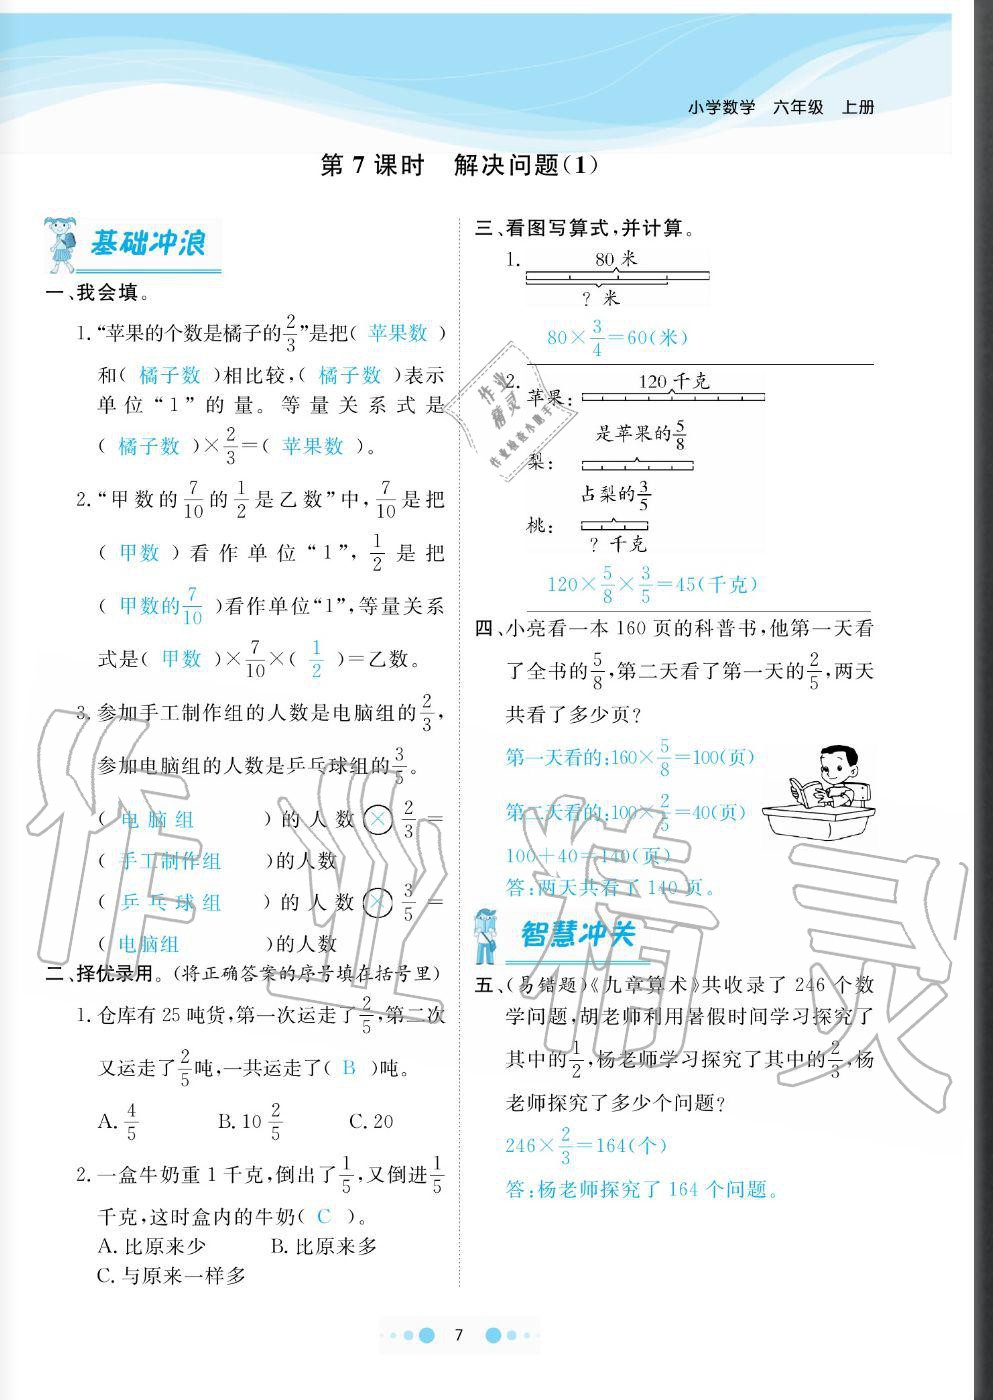 小学数学 六年级 上册
第7课时 解决问题(1)
基础冲浪
一、我会填。
1.“苹果的个数是橘子的2/3”是把( 苹果数 )
和( 橘子数 )相比较,( 橘子数 )表示
单位“1”的量。等量关系式是
( 橘子数 )×2/3=( 苹果数 )。
2.“甲数的7/10的1/2是乙数”中,7/10是把
( 甲数 )看作单位“1”,1/2是把
( 甲数的7/10 )看作单位“1”,等量关系
式是( 甲数 )×7/10×( 1/2 )=乙数。
3.参加手工制作组的人数是电脑组的2/3,
参加电脑组的人数是乒乓球组的3/5。
( 电脑组 )的人数 × 2/3=
( 手工制作组 )的人数
( 乒乓球组 )的人数 × 3/5=
( 电脑组 )的人数
二、择优录用。(将正确答案的序号填在括号里)
1.仓库有25吨货,第一次运走了2/5,第二次
又运走了2/5吨,一共运走了( B )吨。
A. 4/5 B. 10 2/5 C. 20
2.一盒牛奶重1千克,倒出了1/5,又倒进1/5
千克,这时盒内的牛奶( C )。
A. 比原来少 B. 比原来多
C. 与原来一样多
三、看图写算式,并计算。
1. 80米
? 米
80×3/4=60(米)
2. 120千克
苹果:
是苹果的5/8
梨:
占梨的3/5
桃:
? 千克
120×5/8×3/5=45(千克)
四、小亮看一本160页的科普书,他第一天看
了全书的5/8,第二天看了第一天的2/5,两天
共看了多少页?
第一天看的:160×5/8=100(页)
第二天看的:100×2/5=40(页)
100+40=140(页)
答:两天共看了140页。
智慧冲关
五、(易错题)《九章算术》共收录了246个数
学问题,胡老师利用暑假时间学习探究了
其中的1/2,杨老师学习探究了其中的2/3,杨
老师探究了多少个问题?
246×2/3=164(个)
答:杨老师探究了164个问题。
7
作业精灵
作业
精灵